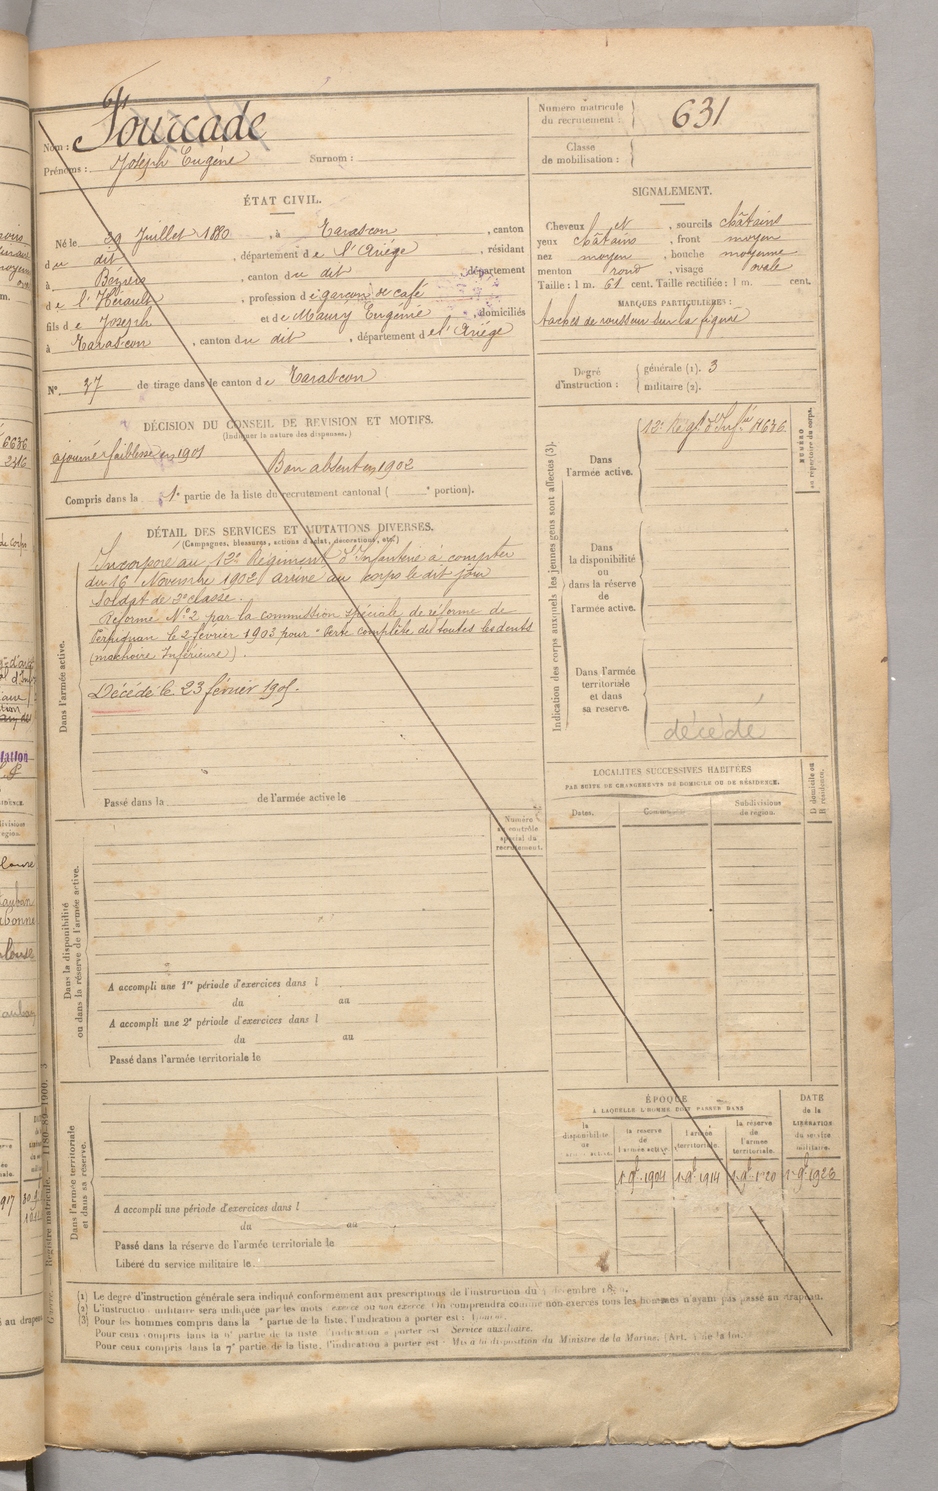 Nom : Fourcade
Prénoms : Joseph Eugène Surnom :
Numéro matricule
du recrutement : 631
Classe
de mobilisation :
ÉTAT CIVIL.
Né le 30 Juillet 1880, à Tarascon, canton
du dit, département de l'Ariége, résidant
à Béziers, canton du dit, département
de l'Hérault, profession de garçon de café
fils de Joseph et de Maury Eugénie, domiciliés
à Tarascon, canton du dit, département de l'Ariége
N° 37 de tirage dans le canton de Tarascon
SIGNALEMENT.
Cheveux et, sourcils châtains
yeux châtains, front moyen
nez moyen, bouche moyenne
menton rond, visage ovale
Taille : 1 m. 61 cent. Taille rectifiée : 1 m. cent.
MARQUES PARTICULIÈRES :
taches de rousseur sur la figure
Degré
d'instruction :
générale (1). 3
militaire (2).
DÉCISION DU CONSEIL DE REVISION ET MOTIFS.
(Indiquer la nature des dispenses.)
ajourné faiblesse en 1901
Bon absent en 1902
Compris dans la 1e partie de la liste du recrutement cantonal ( e portion).
DÉTAIL DES SERVICES ET MUTATIONS DIVERSES.
(Campagnes, blessures, actions d'éclat, décorations, etc.)
Dans l'armée active.
Incorporé au 12e Régiment d'Infanterie à compter
du 16 Novembre 1902 arrivé au corps le dit jour
Soldat de 2e classe.
Réformé N° 2 par la commission spéciale de réforme de
Perpignan le 2 février 1903 pour "Perte complète de toutes les dents
(machoire Inférieure).
Décédé le 23 février 1905.
Passé dans la de l'armée active le
Numéro
au contrôle
spécial du
recrutement.
Dans la disponibilité
ou dans la réserve de l'armée active.
A accompli une 1re période d'exercices dans l
du au
A accompli une 2e période d'exercices dans l
du au
Passé dans l'armée territoriale le
Dans l'armée territoriale
et dans sa réserve.
A accompli une période d'exercices dans l
du au
Passé dans la réserve de l'armée territoriale le
Libéré du service militaire le
Indication des corps auxquels les jeunes gens sont affectés (3).
NUMÉRO
au répertoire du corps.
Dans
l'armée active.
12e Régt d'Infie 11636
Dans
la disponibilité
ou
dans la réserve
de
l'armée active.
Dans l'armée
territoriale
et dans
sa réserve.
décédé
LOCALITÉS SUCCESSIVES HABITÉES
PAR SUITE DE CHANGEMENTS DE DOMICILE OU DE RÉSIDENCE.
Dates.
Communes.
Subdivisions
de région.
D domicile ou
R résidence.
ÉPOQUE
A LAQUELLE L'HOMME DOIT PASSER DANS
la
disponibilité
de
l'armée active.
la réserve
de
l'armée active.
l'armée
territoriale.
la réserve
de
l'armée
territoriale.
DATE
de la
LIBÉRATION
du service
militaire.
1 9bre 1904 1 9bre 1914 1 9bre 1920 1 9bre 1926
(1) Le degré d'instruction générale sera indiqué conformément aux prescriptions de l'instruction du
(2) L'instruction militaire sera indiquée par les mots : exercé ou non exercé. On comprendra comme non exercés tous les hommes n'ayant pas passé au drapeau.
(3) Pour les hommes compris dans la partie de la liste, l'indication à porter est :
Pour ceux compris dans la 6e partie de la liste, l'indication à porter est : Service auxiliaire.
Pour ceux compris dans la 7e partie de la liste, l'indication à porter est : Mis à la disposition du Ministre de la Marine. (Art. 4 de la loi.)